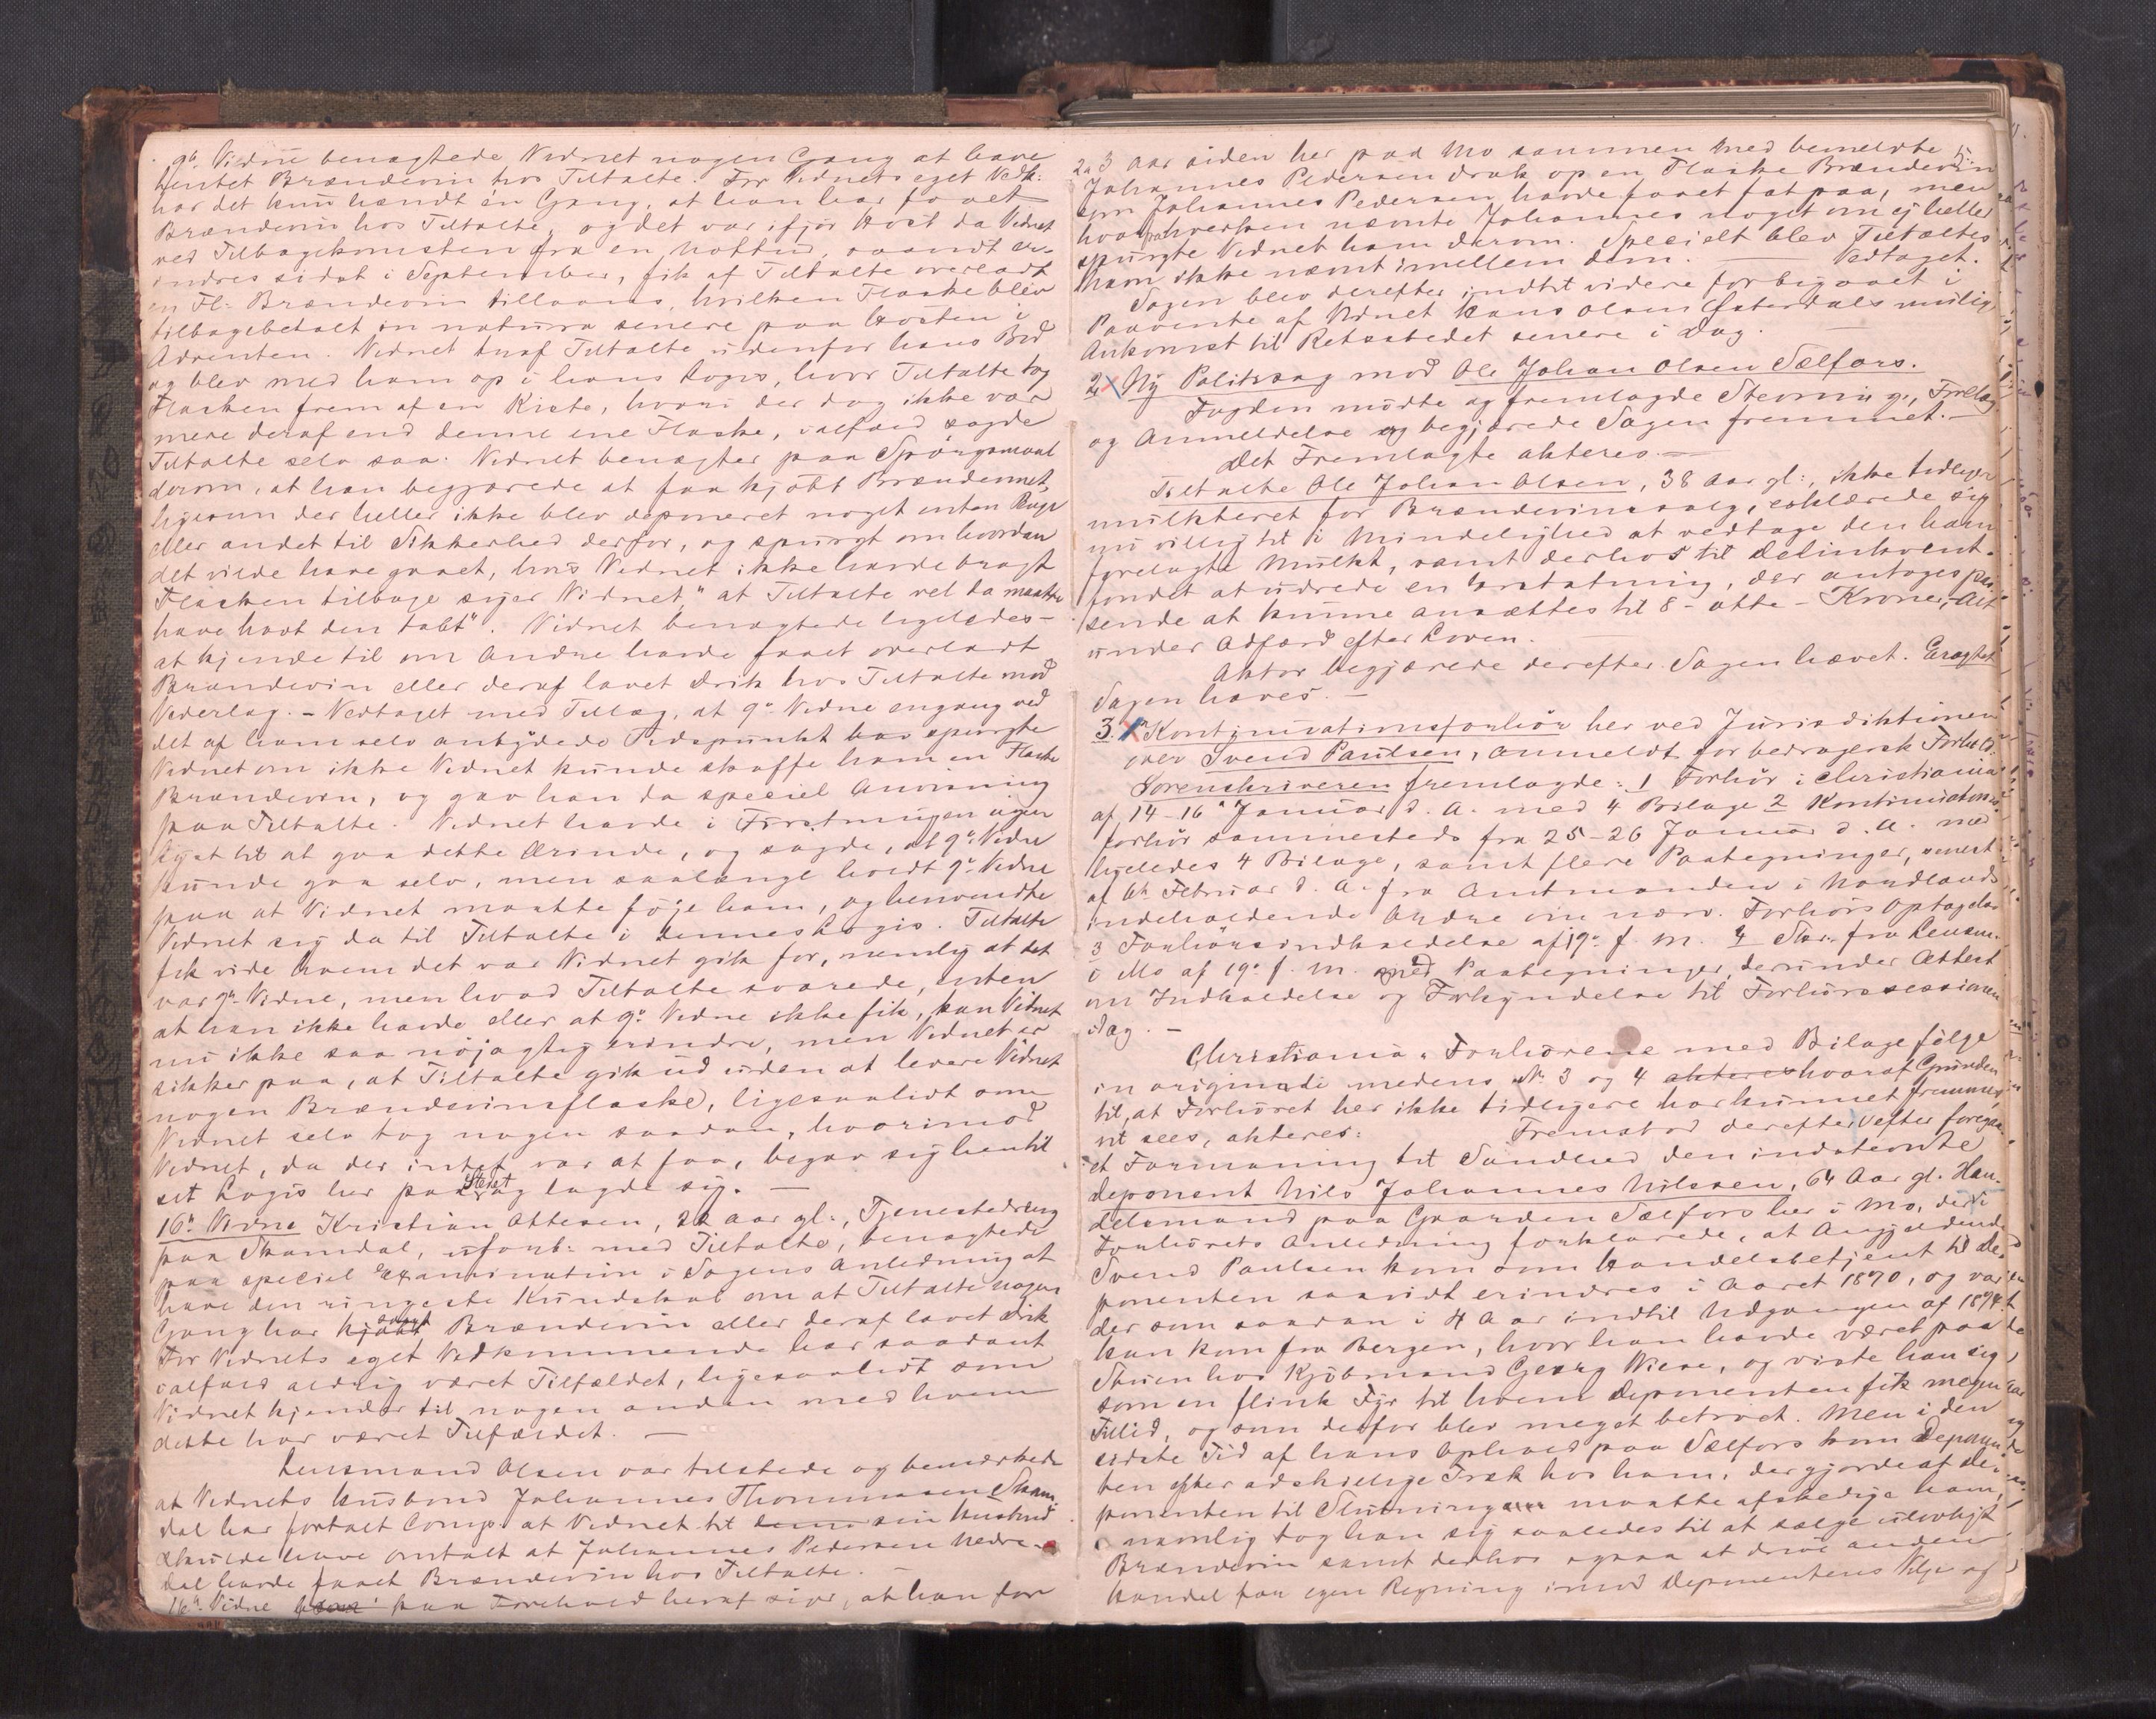 9de Vidne benægtede Vidnet nogen Gang at have
hentet Brændevin hos Tiltalte. For Vidnets eget Vedk:
har det kun hændt én Gang, at han har faaet
Brændevin hos Tiltalte, og det var ifjor Høst da Vidnet
ved Tilbagekomsten fra en Nottur, saavidt er-
indres sidst i September, fik af Tiltalte overladt
en Fl: Brændevin tillaans, hvilken Flaske blev
tilbagebetalt in natura senere paa Høsten i
Adventen. Vidnet traf Tiltalte udenfor hans Bod
og blev med ham op i hans Logis, hvor Tiltalte tog
Flasken frem af en Kiste, hvori der dog ikke var
mere deraf end denne ene Flaske, ialfald sagde
Tiltalte selv saa. Vidnet benægter paa Spørgsmaal
derom, at han begjærede at faa kjøbt Brændevinet,
ligesom der heller ikke blev deponeret noget enten Penge
eller andet til Sikkerhed derfor, og spurgt om hvordan
det vilde have gaaet, hvis Vidnet ikke havde bragt
Flasken tilbage siger Vidnet "at Tiltalte vel da maatte
have havt den tabt". Vidnet benægtede ligeledes
at kjende til om Andre havde faaet overladt
Brændevin eller deraf lavet Drik hos Tiltalte mod
Vederlag. - Vedtaget med Tillæg, at 9de Vidne engang ved
det af ham selv antydede Tidspunkt spurgte
Vidnet om ikke Vidnet kunde skaffe ham en Flaske
Brændevin, og gav han da speciel Anvisning
paa Tiltalte. Vidnet havde i Førstningen ingen
Lyst til at gaa dette Ærinde, og sagde, at 9de Vidne
kunde gaa selv, men saalænge holdt 9de Vidne
paa at Vidnet maatte føje ham, og henvendte
Vidnet sig da til Tiltalte i dennes Logis. Tiltalte
fik vide hvem det var Vidnet gik for, nemlig at det
var 9de Vidne, men hvad Tiltalte svarede, enten
at han ikke havde eller at 9de Vidne ikke fik, kan Vidnet
nu ikke saa nøjagtig erindre, men Vidnet er
sikker paa, at Tiltalte gik ud uden at levere Vidnet
nogen Brændevinsflaske, ligesaalidt som
Vidnet selv tog nogen saadan, hvorimod
Vidnet, da der intet var at faa, begav sig hen til
sit Logis her paa Stedet og lagde sig. -
16de Vidne Kristian Attesen, 22 Aar gl:, Tjenestedreng
paa Skamdal, uforb: med Tiltalte, benægtede
paa speciel Examination i Sagens Anledning at
have den ringeste Kundskab om at Tiltalte nogen
Gang har kjøbt solgt Brændevin eller deraf lavet Drik
For Vidnets eget Vedkommende har saadant
ialfald aldrig været Tilfældet, ligesaalidt som
Vidnet kjender til nogen anden med hvem
dette har været Tilfældet. -
Lensmand Olsen var tilstede og bemærkede
at Vidnets Husbond Johannes Thommasen Skam-
dal har fortalt Comp. at Vidnet til sin Husbond
skulde have omtalt at Johannes Pedersen Nedre-
dal havde faaet Brændevin hos Tiltalte. -
16de Vidne paa Forehold heraf siger, at han for
2 a 3 Aar siden her paa Mo sammen med bemeldte
Johannes Pedersen drak op en Flaske Brændevin
som Johannes Pedersen havde faaet fat paa, men
hvorfra hverken nævnte Johannes noget om ej heller
spurgte Vidnet ham derom. Specielt blev Tiltaltes
Navn ikke nævnt imellem dem. - Vedtaget.
Sagen blev derefter indtil videre forbigaaet i
Paavente af Vidnet Hans Olsen Østerdals mulige
Ankomst til Retsstedet senere i Dag.
2. Ny Politisag mod Ole Johan Olsen Sælfors.
Fogden mødte og fremlagde Stevning, Forelæg
og Anmeldelse og begjærede Sagen fremmet. -
Det Fremlagte akteres. -
Tiltalte Ole Johan Olsen, 38 Aar gl:, ikke tidligere
mulkteret for Brændevinssalg, erklærede sig
nu villig til i Mindelighed at vedtage den ham
forelagte Mulkt, samt derhos til Delinkvent-
fondet at udrede en Erstatning, der antoges pas-
sende at kunne ansættes til 8 - otte - Kroner, Alt
under Adfærd efter Loven.
Aktor begjærede derefter Sagen hævet. Eragtet
Sagen hæves. -
3. Kontinuationsforhør her ved Jurisdiktionen
over Svend Paulsen, anmeldt for bedragersk Forhold.
Sorenskriveren fremlagde: 1 Forhør i Christiania
af 14-16 Januar d. A. med 4 Bilage 2 Kontinuations-
forhør sammesteds fra 25-26 Januar d. A. med
ligeledes 4 Bilage, samt flere Paategninger, senest
af 6te Februar d. A. fra Amtmanden i Nordlands
indeholdende Ordre om nærv. Forhørs Optagelse
3 Forhørsindkaldelse af 19de f. M. 4 Skr. fra Lensm.
i Mo af 19de f. M. med Paategninger, derunder Attest
om Indkaldelse og Forkyndelse til Forhørssessionen
idag. -
Christiania-Forhørene med Bilage følge
in originali medens No 3 og 4 akteres hvoraf Grunden
til, at Forhøret her ikke tidligere har kunnet fremmes,
vil sees, akteres: Fremstod derefter efter foregaa-
et Formaning til Sandhed den indstevnte
Deponent Nils Johannes Nilssen, 64 Aar gl. Han-
delsmand paa Gaarden Sælfors her i Mo, der i
Forhørets Anledning forklarede, at Angjældende
Svend Paulsen kom som Handelsbetjent til De-
ponenten saavidt erindres i Aaret 1890, og var
der som saadan i 4 Aar indtil Udgangen af 1894.
Han kom fra Bergen, hvor han havde været paa
Stuen hos Kjøbmand Georg Wiese, og viste han sig
som en flink Fyr til hvem Deponenten fik megen
Tillid, og som derfor blev meget betroet. Men i den
sidste Tid af hans Ophold paa Sælfors kom Deponen-
ten efter adskillige Træk hos ham, der gjorde at De-
ponenten til Slutningen maatte afskedige ham,
nemlig tog han sig saaledes til at sælge ulovligt
Brændevin samt derhos ogsaa at drive anden
Handel for egen Regning imod Deponentens Vilje og